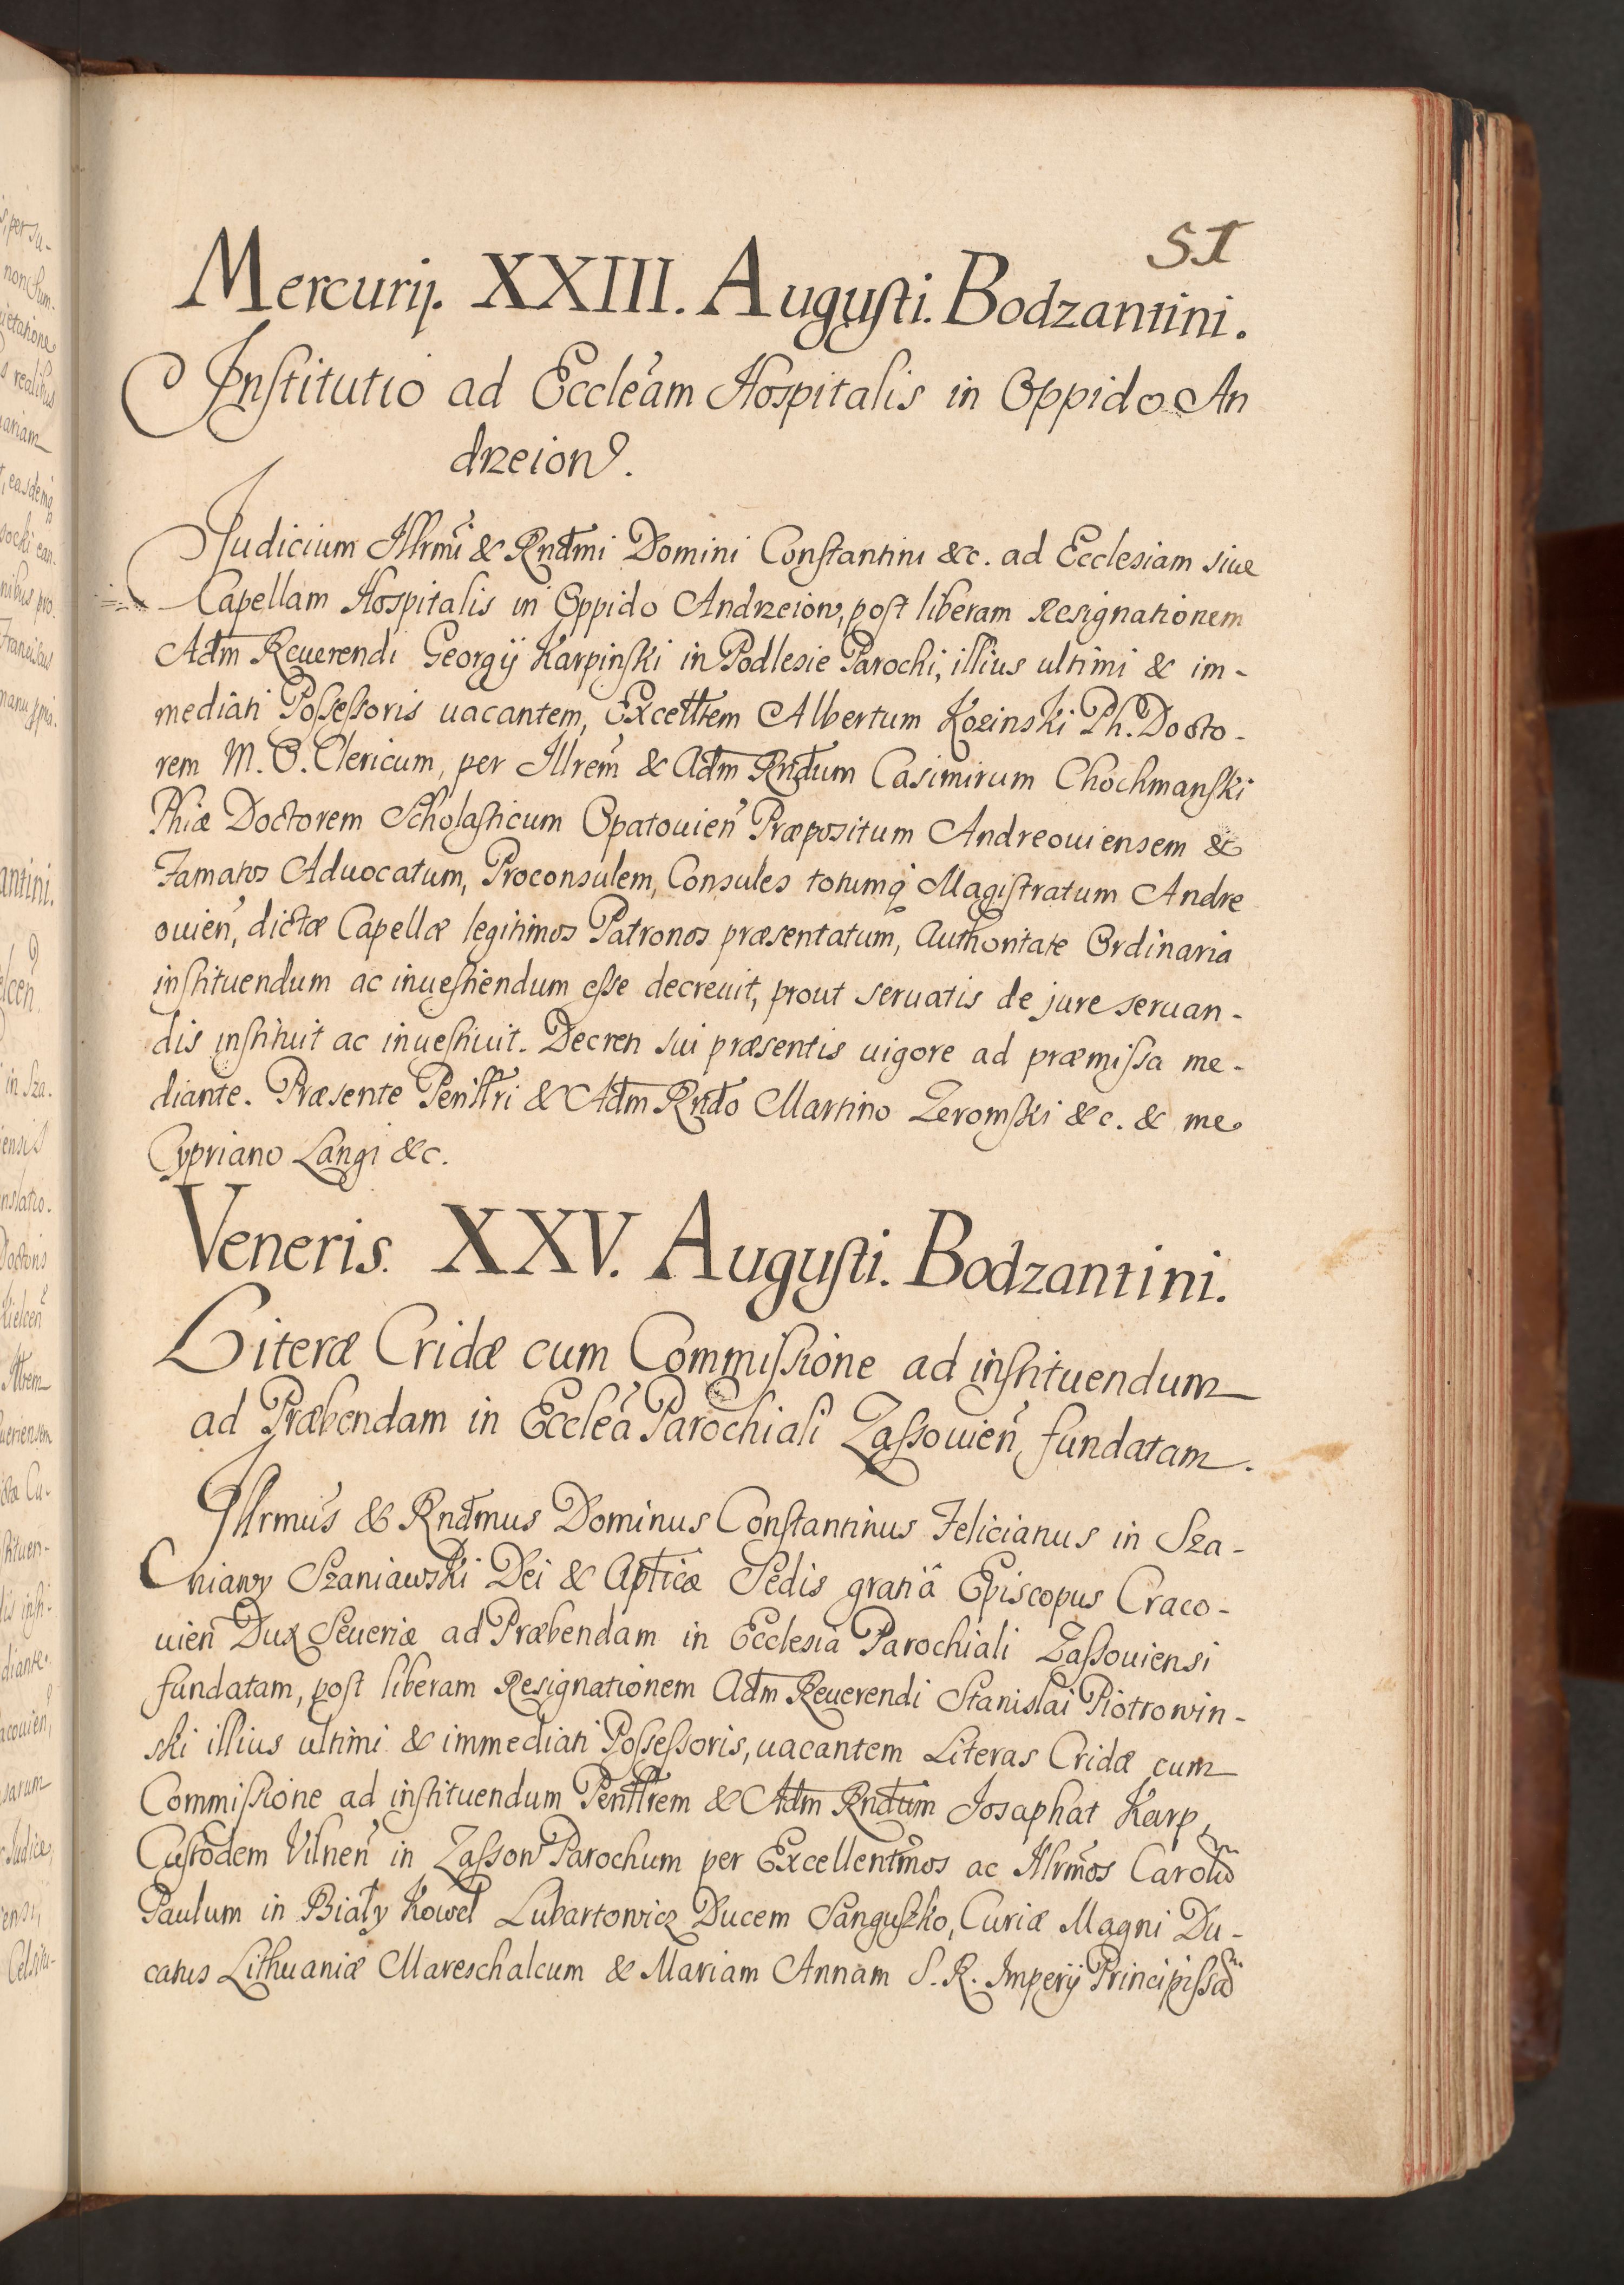 51
Mercurij. XXIII. Augusti. Bodzantini.
Institutio ad Eccleâm Hospitalis in Oppido An
drzeiow.
Judicium Illrmi & Rndmi Domini Constantini &c. ad Ecclesiam siue
Capellam Hospitalis in Oppido Andrzeiow, post liberam Resignationem
Adm Reuerendi Georgij Karpinski in Podlesie Parochi, illius ultimi & im-
mediati Possessoris uacantem, Excelltem Albertum Kozinski Ph. Docto-
rem M. O. Clericum, per Illrem & Adm Rndum Casimirum Chochmanski
Phiæ Doctorem Scholasticum Opatouien Præpositum Andreouiensem &
Famatos Aduocatum, Proconsulem, Consules totumq Magistratum Andre
ouien, dictæ Capellæ legitimos Patronos præsentatum, Authoritate Ordinaria
instituendum ac inuestiendum esse decreuit, prout seruatis de jure seruan-
dis instituit ac inuestiuit. Decreti sui præsentis uigore ad præmissa me-
diante. Præsente Penlltri & Adm Rndo Martino Zeromski &c. & me
Cypriano Langi &c.
Veneris. XXV. Augusti. Bodzantini.
Literæ Cridæ cum Commissione ad instituendum
ad Præbendam in Eccleâ Parochiali Zassouien fundatam.
Illrmus & Rndmus Dominus Constantinus Felicianus in Sza-
niawy Szaniawski Dei & Apticæ Sedis gratiâ Episcopus Craco-
uien Dux Seueriæ ad Præbendam in Ecclesia Parochiali Zassouiensi
fundatam, post liberam Resignationem Adm Reuerendi Stanislai Piotrowin-
ski illius ultimi & immediati Possessoris, uacantem Literas Cridæ cum
Commissione ad instituendum Penlltrem & Adm Rndum Josaphat Karp,
Custodem Vilnen in Zassow Parochum per Excellentmos ac Illrmos Carolu
Paulum in Biały Kowel Lubartowicz Ducem Sanguszko, Curiæ Magni Du-
catus Lithuaniæ Mareschalcum & Mariam Annam S. R. Imperij Principissa